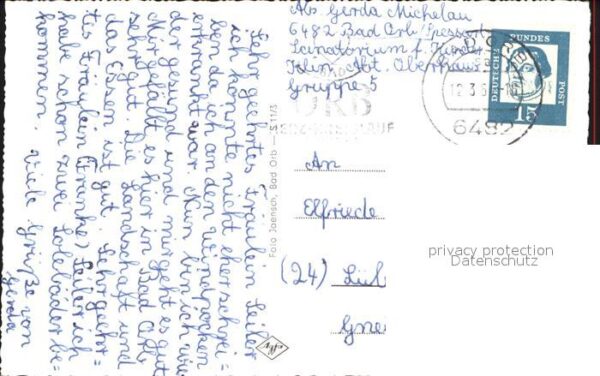 Abs Gerda Michelau
6482 Bad Orb/Spessart
Sanatorium f. Kinder
Klin. Abt. Oberhaus
Gruppe 5
DEUTSCHE
BUNDES
POST
15
12.3.6
6482
ORB
An
Elfriede
(24) Lüb
Gnei
privacy protection
Datenschutz
Foto Jaensch, Bad Orb — S 11/3
Sehr geehrtes Fräulein Seiler
ich konnte nicht eher schrei=
ben da ich an den Windpocken
erkrankt war. Nun bin ich wie
der gesund und mir geht es gut
Mir gefällt es hier in Bad Orb
sehr gut. Die Landschaft und
das Essen ist gut. Sehr geehr=
tes Fräulein Franke, Seiler ich
habe schon zwei Solebäder be=
kommen. Viele Grüße von
Gerda